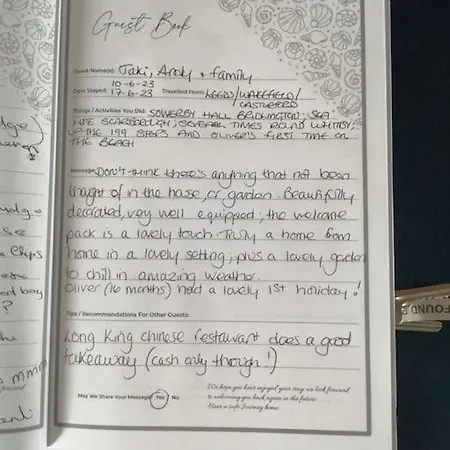 Guest Book
Guest Name(s): Jaki, Andy + family
Date Stayed: 10-6-23
17-6-23 Travelled From: LEEDS/WAKEFIELD/
CASTLEFORD
Things/Activities You Did: SEWERBY HALL BRIDLINGTON, SEA
LIFE SCARBOROUGH, SEVERAL TIMES ROUND WHITBY,
UP THE 199 STEPS AND OLIVER'S FIRST TIME ON
THE BEACH
Message: Don't think there's anything that not been
thought of in the house, or garden. Beautifully
decorated, very well equipped; the welcome
pack is a lovely touch. Truly a home from
home in a lovely setting; plus a lovely garden
to chill in amazing weather.
Oliver (16 months) had a lovely 1st holiday!
Tips / Recommendations For Other Guests:
Long King chinese restaurant does a good
takeaway (cash only though!)
May We Share Your Message? Yes No
We hope you have enjoyed your stay, we look forward
to welcoming you back again in the future.
Have a safe Journey home
FOUND